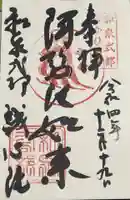 奉拝
令和四年
十二月十九日
阿弥陀如来
和泉式部
誠心院